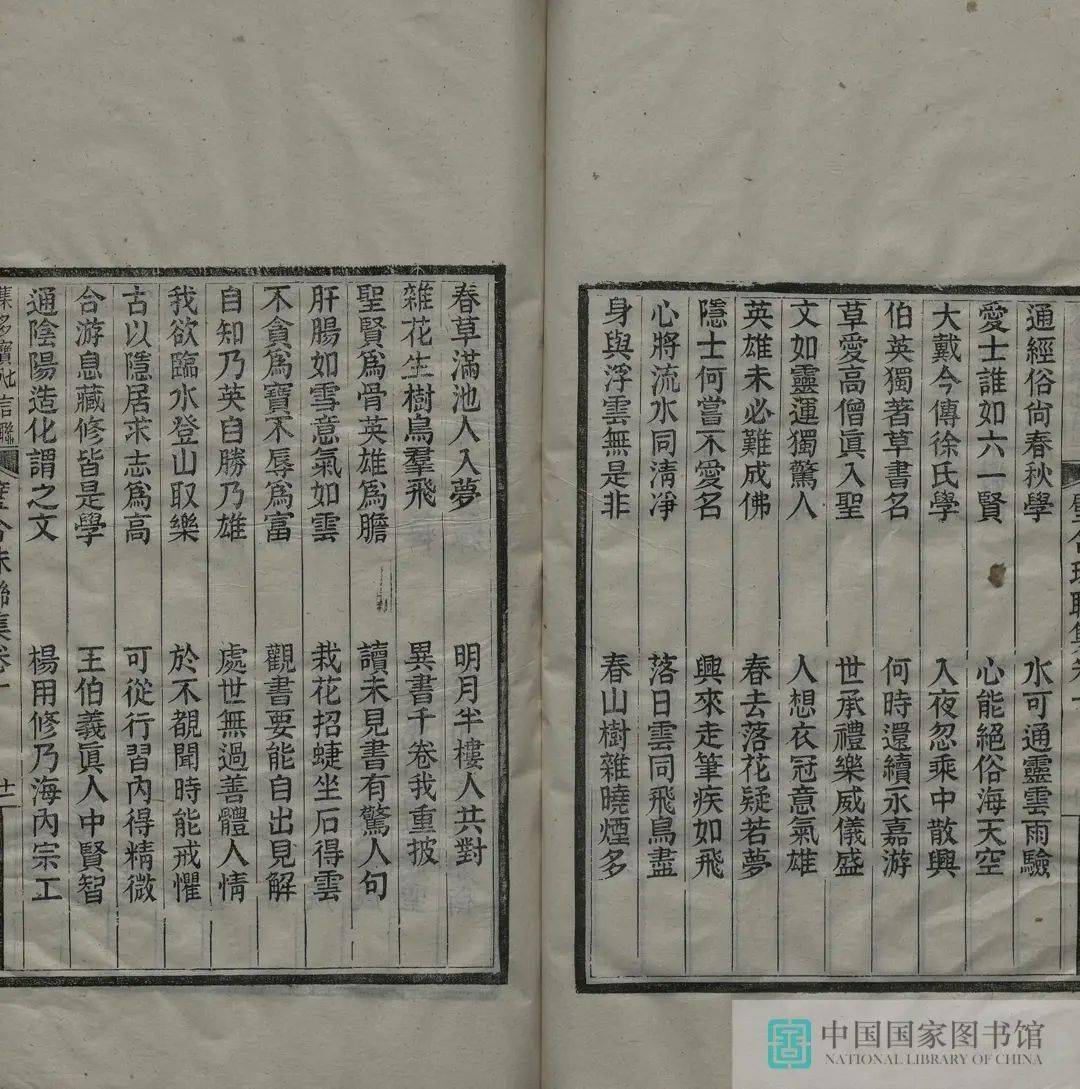 通經俗尙春秋學　水可通靈雲雨驗
愛士誰如六一賢　心能絕俗海天空
大戴今傳徐氏學　入夜忽乘中散興
伯英獨著草書名　何時還續永嘉游
草愛高僧眞入聖　世承禮樂威儀盛
文如靈運獨驚人　人想衣冠意氣雄
英雄未必難成佛　春去落花疑若夢
隱士何嘗不愛名　興來走筆疾如飛
心將流水同清凈　落日雲同飛鳥盡
身與浮雲無是非　春山樹雜曉煙多
春草滿池人入夢　明月半樓人共對
雜花生樹鳥羣飛　異書千卷我重披
聖賢爲骨英雄爲膽　讀未見書有驚人句
肝腸如雪意氣如雲　栽花招蜨坐石得雲
不貪爲寶不辱爲富　觀書要能自出見解
自知乃英自勝乃雄　處世無過善體人情
我欲臨水登山取樂　於不覩聞時能戒懼
古以隱居求志爲高　可從行習內得精微
合游息藏修皆是學　王伯義眞人中賢智
通陰陽造化謂之文　楊用修乃海內宗工
集多寶
中国国家图书馆
NATIONAL LIBRARY OF CHINA